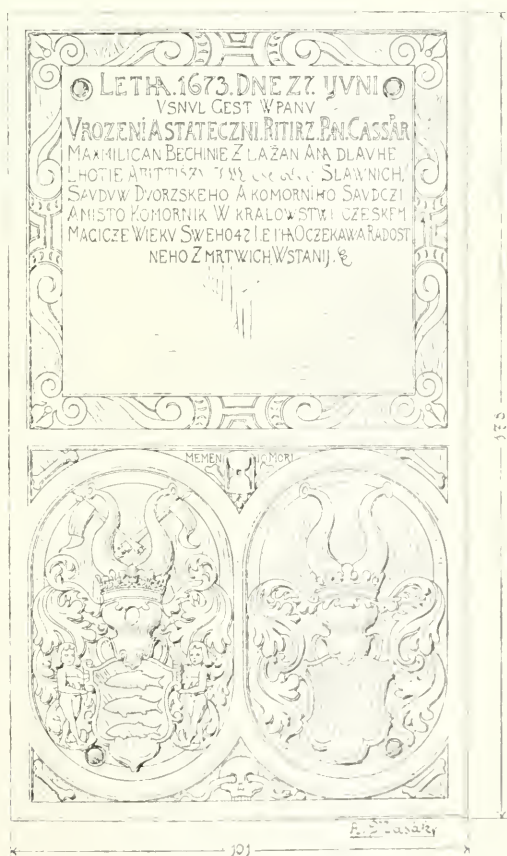 LETHA.1673.DNE Z7. YVNI
VSNVL GEST WPANV
VROZENI A STATECZNI. RITIRZ. PAN. CASSAR
MAXMILICAN BECHINIE Z LAŽAN ANA DLAVHE
LHOTIE SLAWNICH.
SAVDVW DVORZSKEHO A KOMORNIHO SAVDCZI
A MISTO KOMORNIK W KRALOWSTWI CZESKEM
MAGICZE WIEKV SWEHO 42 LETHA OCZEKAWA RADOST
NEHO Z MRTWICH WSTANIJ.
MEMEN MORI
101